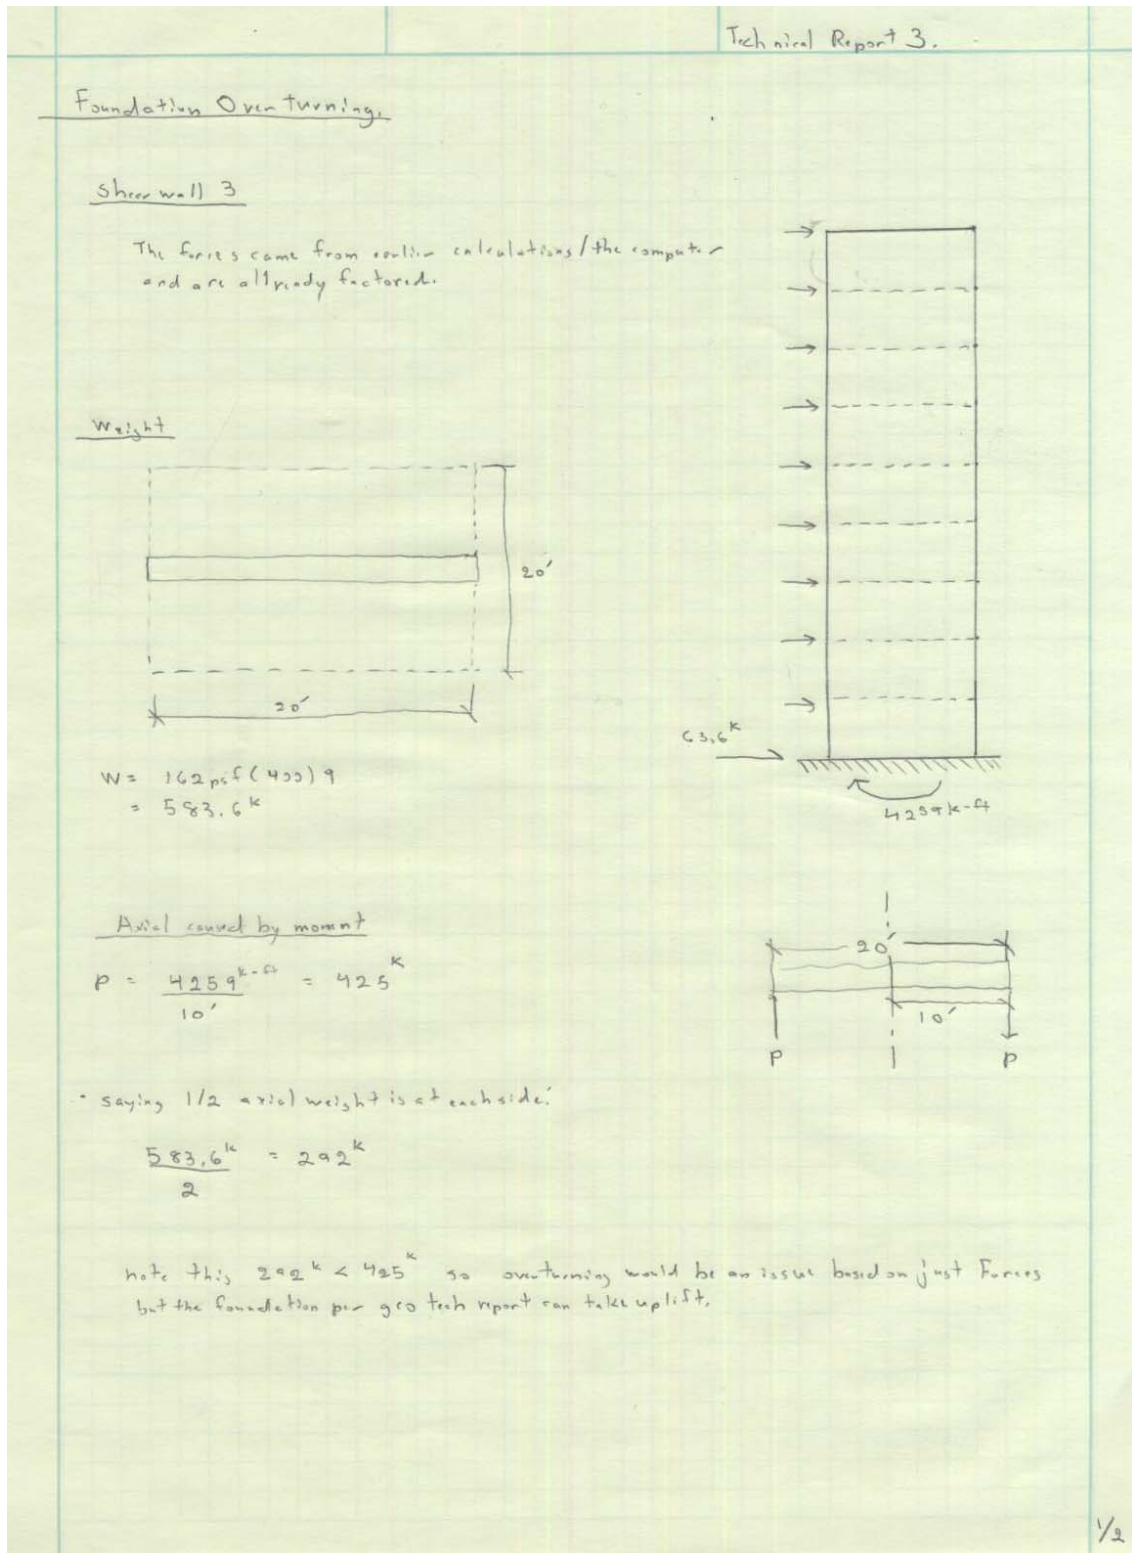 Technical Report 3.
Foundation Overturning.
Shear wall 3
The forces came from earlier calculations/the computer
and are allready factored.
Weight
20'
20'
W = 162 psf (400) 9
= 583.6 k
63.6 k
4259 k-ft
Axial caused by momnt
P = 4259 k-ft / 10' = 425 k
20'
10'
P P
• saying 1/2 axial weight is at each side.
583.6 k / 2 = 292 k
note this 292 k < 425 k so overturning would be an issue based on just Forces
but the foundation per geo tech report can take uplift.
1/2